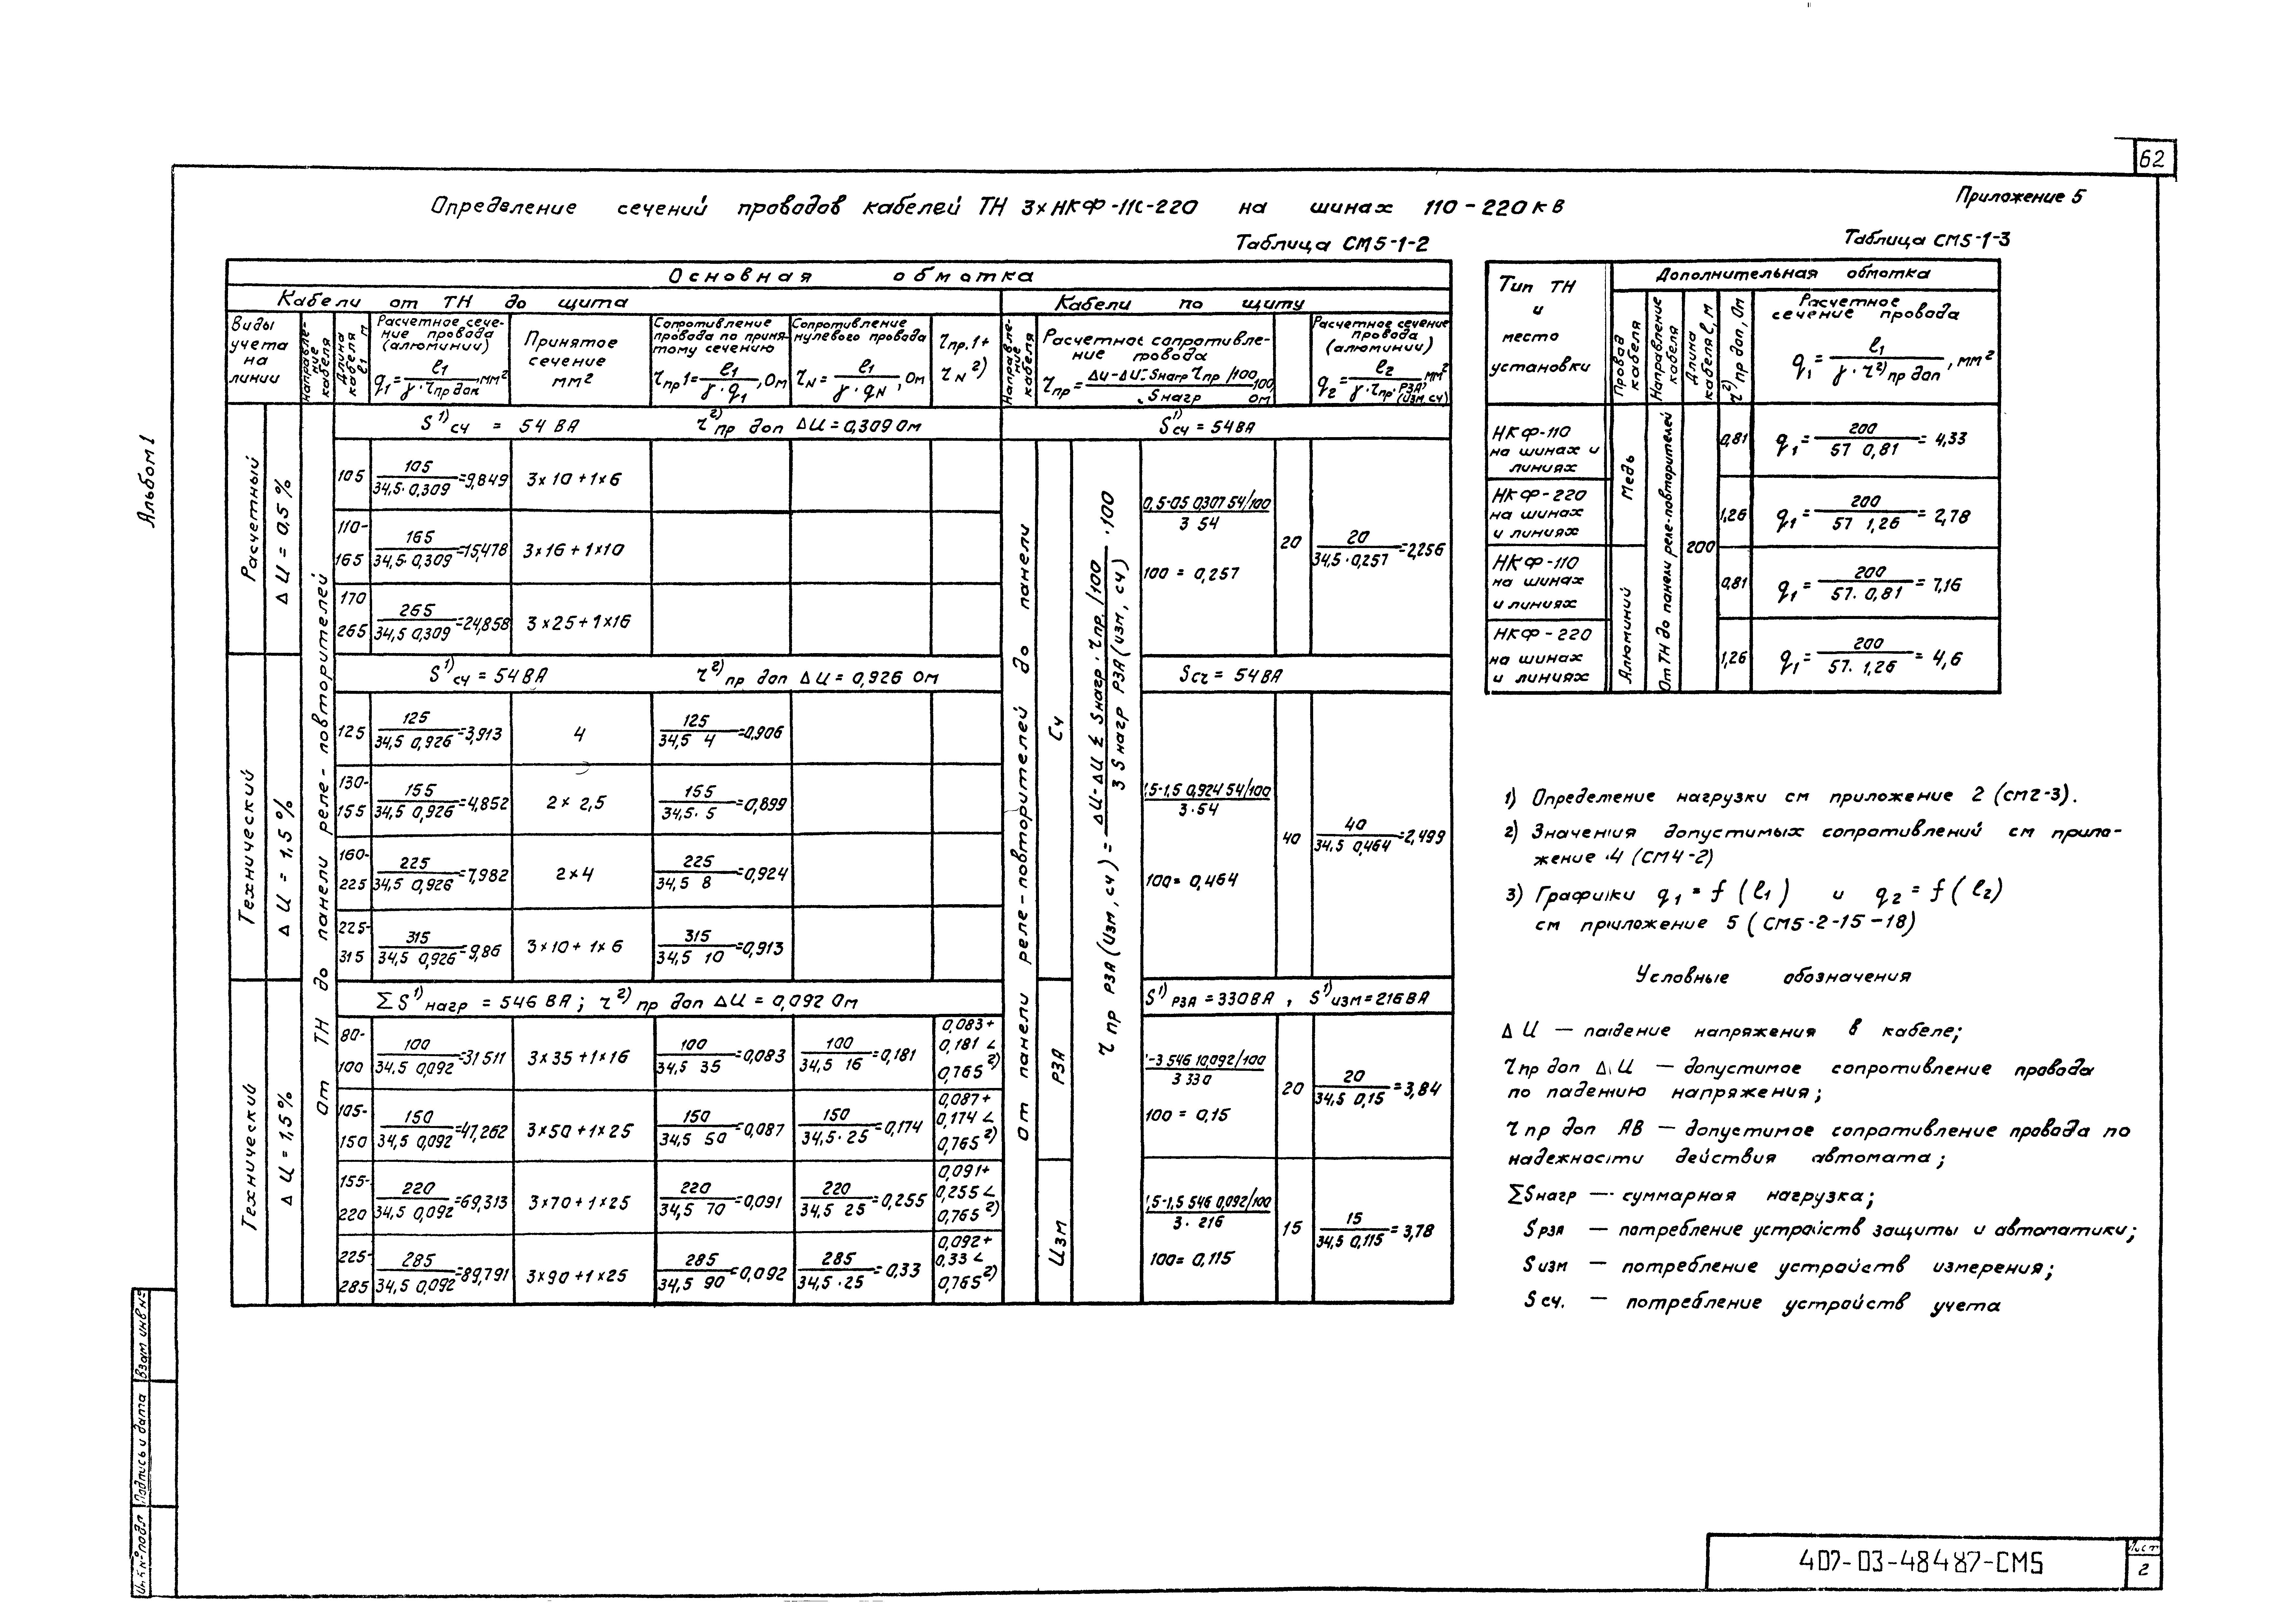 62
Приложение 5
Определение сечений проводов кабелей ТН 3×НКФ-110-220 на шинах 110-220кв
Таблица СМ5-1-2
Основная обмотка
Кабели от ТН до щита
Кабели по щиту
Виды учета на линии
Направление кабеля
Длина кабеля l1 м
Расчетное сечение провода (алюминий) q1 = l1 / γ · ɽпр доп мм²
Принятое сечение мм²
Сопротивление провода по принятому сечению ɽпр1 = l1 / γ · q1, Ом
Сопротивление нулевого провода ɽN = l1 / γ · qN, Ом
ɽпр.1 + ɽN 2)
Направление кабеля
Расчетное сопротивление провода ɽпр = ΔU-ΔU·Sнагр ɽпр /100 / Sнагр 100 ом
Расчетное сечение провода (алюминий) q2 = l2 / γ · ɽпр. РЗА, (изм. сч) мм²
Расчетный
ΔU = 0,5 %
От ТН до панели реле-повторителей
S 1) сч = 54 ВА ɽ 2) пр доп ΔU = 0,309 Ом
105 105 / 34,5·0,309 = 9,849 3×10+1×6
110-165 165 / 34,5·0,309 = 15,478 3×16+1×10
170 265 265 / 34,5 0,309 = 24,858 3×25+1×16
Технический
ΔU = 1,5 %
S 1) сч = 54 ВА ɽ 2) пр доп ΔU = 0,926 Ом
125 125 / 34,5 0,926 = 3,913 4 125 / 34,5 4 = 0,906
130-155 155 / 34,5 0,926 = 4,852 2×2,5 155 / 34,5·5 = 0,899
160-225 225 / 34,5 0,926 = 7,982 2×4 225 / 34,5 8 = 0,924
225-315 315 / 34,5 0,926 = 9,86 3×10+1×6 315 / 34,5 10 = 0,913
Технический
ΔU = 1,5 %
ΣS 1) нагр = 546 ВА; ɽ 2) пр доп ΔU = 0,092 Ом
80-100 100 / 34,5 0,092 = 31511 3×35+1×16 100 / 34,5 35 = 0,083 100 / 34,5 16 = 0,181 0,083+0,181 < 0,765 2)
105-150 150 / 34,5 0,092 = 47,262 3×50+1×25 150 / 34,5 50 = 0,087 150 / 34,5·25 = 0,174 0,087+0,174 < 0,765 2)
155-220 220 / 34,5 0,092 = 69,313 3×70+1×25 220 / 34,5 70 = 0,091 220 / 34,5 25 = 0,255 0,091+0,255 < 0,765 2)
225-285 285 / 34,5 0,092 = 89,791 3×90+1×25 285 / 34,5 90 = 0,092 285 / 34,5·25 = 0,33 0,092+0,33 < 0,765 2)
От панели реле-повторителей до панели
Сч
РЗА
Изм
ɽ пр РЗА (изм, сч) = ΔU-ΔU Σ Sнагр·ɽпр./100 / 3 Sнагр РЗА (изм, сч) ·100
S 1) сч = 54ВА
0,5-05 0,307 54/100 / 3 54
100 = 0,257
20 20 / 34,5·0,257 = 2,256
Sсч = 54ВА
1,5-1,5 0,924 54/100 / 3·54
100 = 0,464
40 40 / 34,5 0,464 = 2,499
S 1) РЗА = 330ВА, S 1) изм = 216ВА
-3 546 10,092/100 / 3 330
100 = 0,15
20 20 / 34,5 0,15 = 3,84
1,5-1,5 546 0,092/100 / 3·216
100 = 0,115
15 15 / 34,5 0,115 = 3,78
Таблица СМ5-1-3
Тип ТН и место установки
Дополнительная обмотка
Провод кабеля
Направление кабеля
Длина кабеля l, м
ɽ 2) пр доп, Ом
Расчетное сечение провода q1 = l1 / γ · ɽ 2) пр доп, мм²
НКФ-110 на шинах и линиях 0,81 q1 = 200 / 57 0,81 = 4,33
НКФ-220 на шинах и линиях 1,26 q1 = 200 / 57 1,26 = 2,78
НКФ-110 на шинах и линиях 0,81 q1 = 200 / 57. 0,81 = 7,16
НКФ-220 на шинах и линиях 1,26 q1 = 200 / 57. 1,26 = 4,6
Медь
Алюминий
От ТН до панели реле-повторителей
200
1) Определение нагрузки см приложение 2 (см2-3).
2) Значения допустимых сопротивлений см прило-
жение 4 (СМ4-2)
3) Графики q1 = f (l1) и q2 = f (l2)
см приложение 5 (СМ5-2-15-18)
Условные обозначения
ΔU — падение напряжения в кабеле;
ɽпр доп ΔU — допустимое сопротивление провода
по падению напряжения;
ɽпр доп АВ — допустимое сопротивление провода по
надежности действия автомата;
ΣSнагр — суммарная нагрузка;
Sрза — потребление устройств защиты и автоматики;
Sизм — потребление устройств измерения;
Sсч. — потребление устройств учета
Альбом 1
Взам инв №
Подпись и дата
Инв № подл
407-03-484 87-СМ5
Лист
2